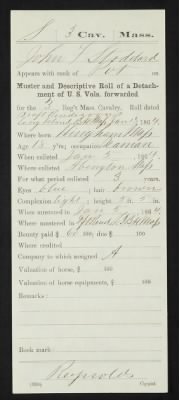 S | 3 Cav. | Mass.
John S Stoddard
Appears with rank of Pvt on
Muster and Descriptive Roll of a Detachment of U. S. Vols. forwarded
for the 3 Reg't Mass. Cavalry. Roll dated
Jan 13, 1864.
Where born Hingham Mass
Age 18 y'rs; occupation Seaman
When enlisted Jan 5, 1864.
Where enlisted Abington Mass
For what period enlisted 3 years.
Eyes blue; hair brown
Complexion light; height 5 ft. 5 in.
When mustered in Jan 5, 1864.
Where mustered in
Bounty paid $ 60 100; due $ 100
Where credited
Company to which assigned A
Valuation of horse, $ 100
Valuation of horse equipments, $ 100
Remarks:
Book mark:
Reynolds
Copyist.